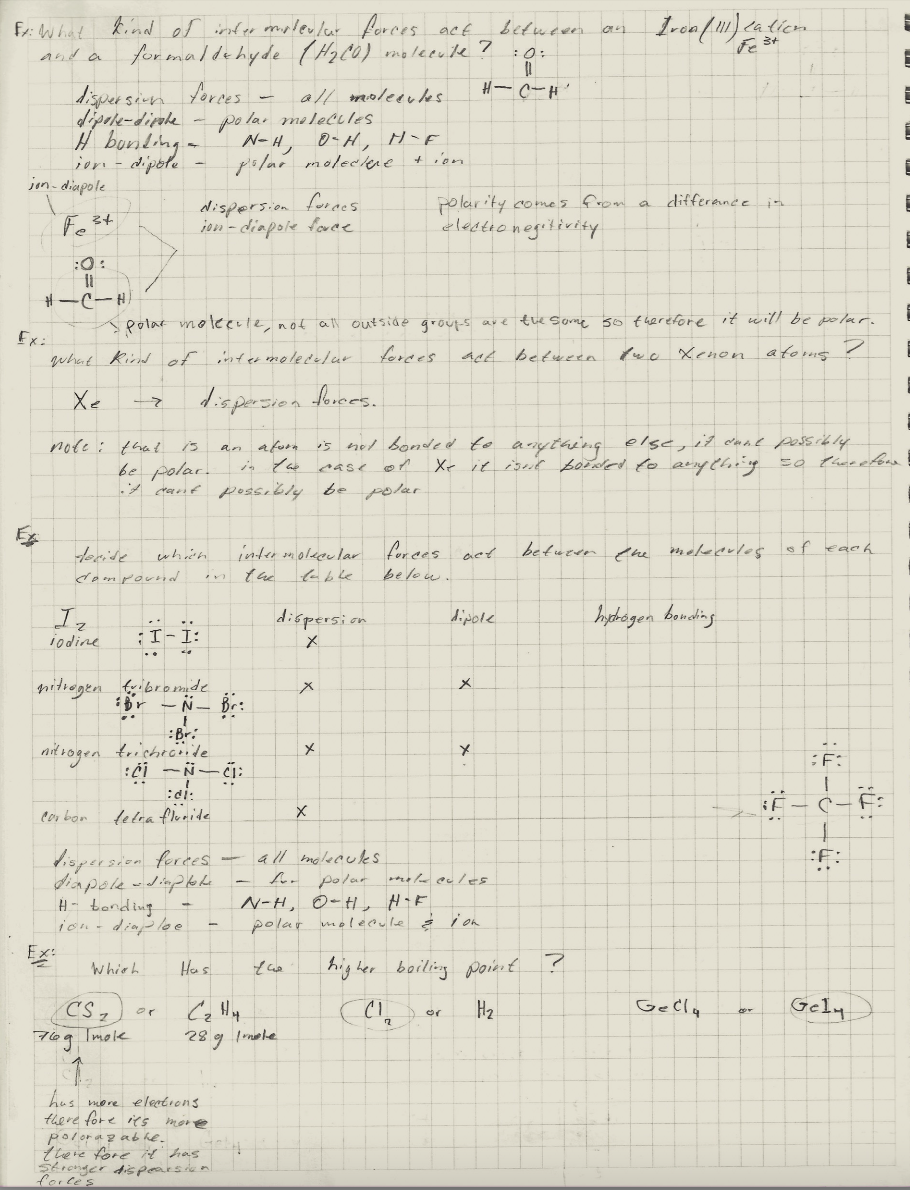 Ex: What kind of intermolecular forces act between an Iron(III) cation
and a formaldehyde (H₂CO) molecule? Fe³⁺
:O:
||
H – C – H
dispersion forces – all molecules
dipole-dipole – polar molecules
H bonding – N-H, O-H, H-F
ion-dipole – polar molecule + ion
ion-diapole
Fe³⁺ dispersion forces polarity comes from a difference in
ion-diapole force electronegitivity
:O:
||
H – C – H
polar molecule, not all outside groups are the same so therefore it will be polar.
Ex:
What kind of intermolecular forces act between two Xenon atoms?
Xe → dispersion forces.
note: that is an atom is not bonded to anything else, it cant possibly
be polar. in the case of Xe it isnt bonded to anything so therefore
it cant possibly be polar
Ex
decide which intermolecular forces act between the molecules of each
compound in the table below.
I₂ :I – I: dispersion dipole hydrogen bonding
iodine X
nitrogen tribromide X X
:Br – N – Br:
|
:Br:
nitrogen trichroride X X
:Cl – N – Cl:
|
:Cl:
carbon tetrafluride X
:F:
|
:F – C – F:
|
:F:
dispersion forces – all molecules
diapole-diaplole – for polar molecules
H-bonding – N-H, O-H, H-F
ion-diaploe – polar molecule & ion
Ex:
Which Has the higher boiling point?
CS₂ or C₂H₄ Cl₂ or H₂ GeCl₄ or GeI₄
76g/mole 28g/mole
↑
has more electrons
therefore its more
polorazable.
therefore it has
stronger dispearsion
forces